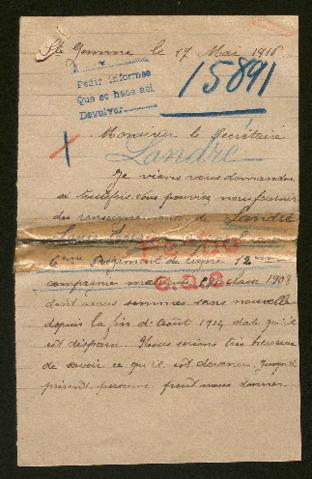 Ste Gemme le 17 Mai 1916
Pedir informes
Que se hace aci
Devolver
15891
Monsieur le Secrétaire
Landré
Je viens vous demander
si toutefois vous pouvez nous fournir
des renseignements de Landré
6ème Régiment de ligne 12ème
compagnie classe 1908
dont nous sommes sans nouvelle
depuis la fin d'Août 1914 date qu'il
est disparu. Nous serions très heureux
de savoir ce qu'il est devenu. Jusqu'à
présent personne peut nous donner